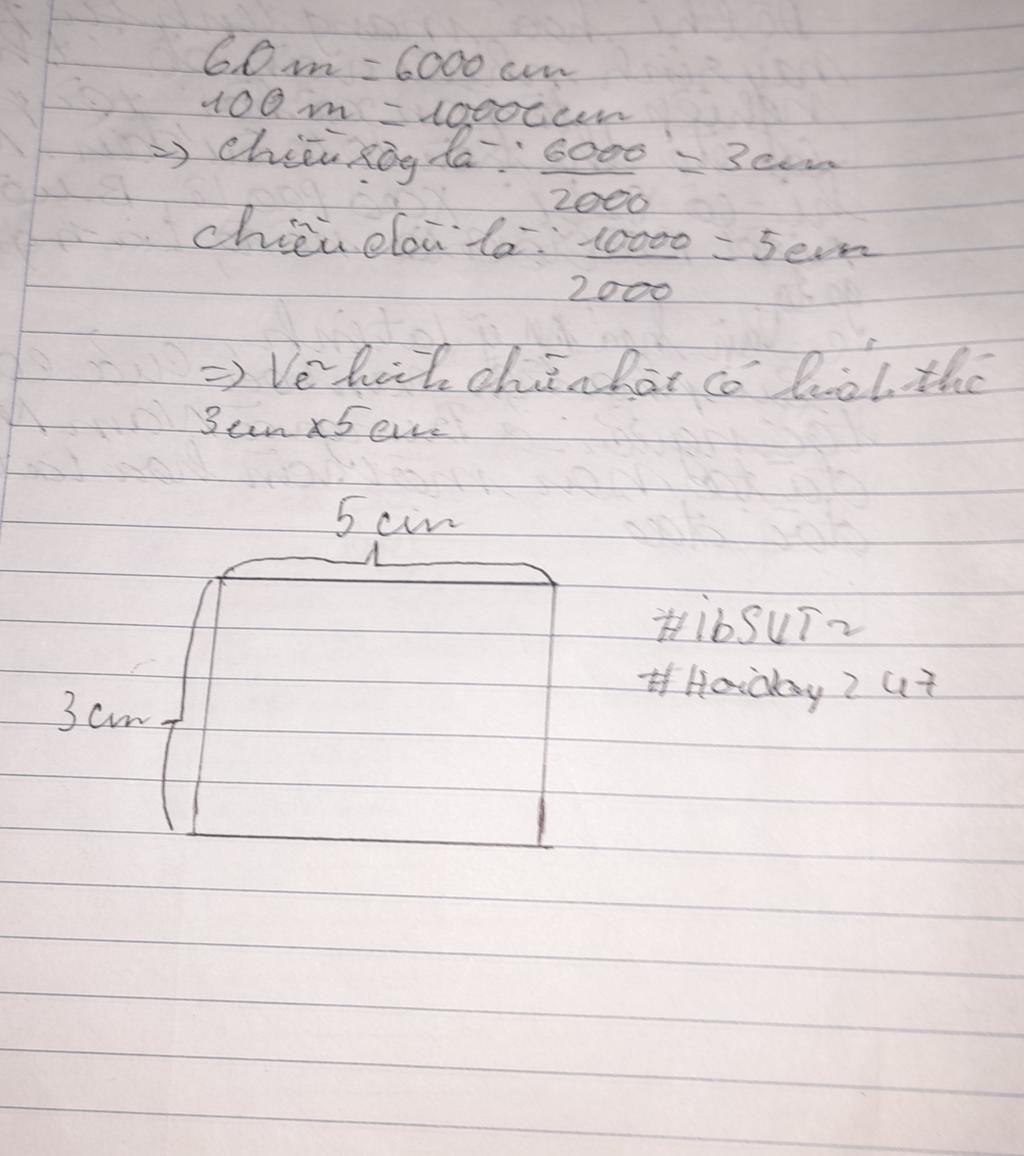 60 m = 6000 cm
100 m = 10000 cm
=> chiều rộng là : 6000 = 3 cm
2000
chiều dài là : 10000 = 5 cm
2000
=> Vẽ hình chữ nhật có kích thc
3 cm x 5 cm
5 cm
3 cm
#ibSUT2
#Hoiday247